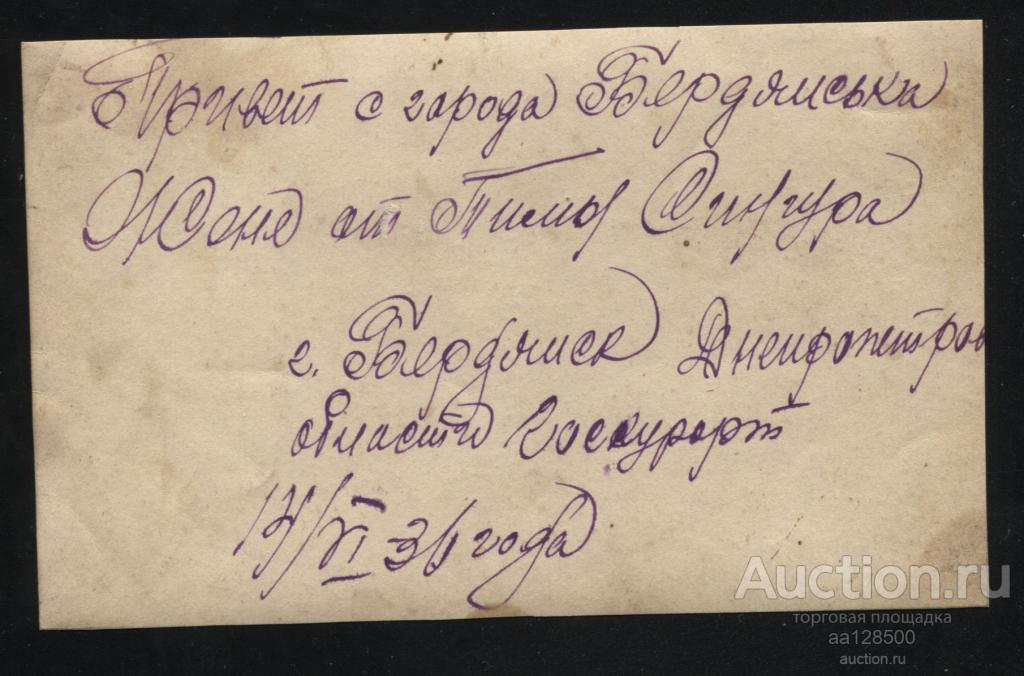 Привет с города Бердямська
Жене от Тимы Сингура
г. Бердямск Днепропетров
области Госкурорт
14/VI 36 года
Auction.ru
торговая площадка
aa128500
auction.ru